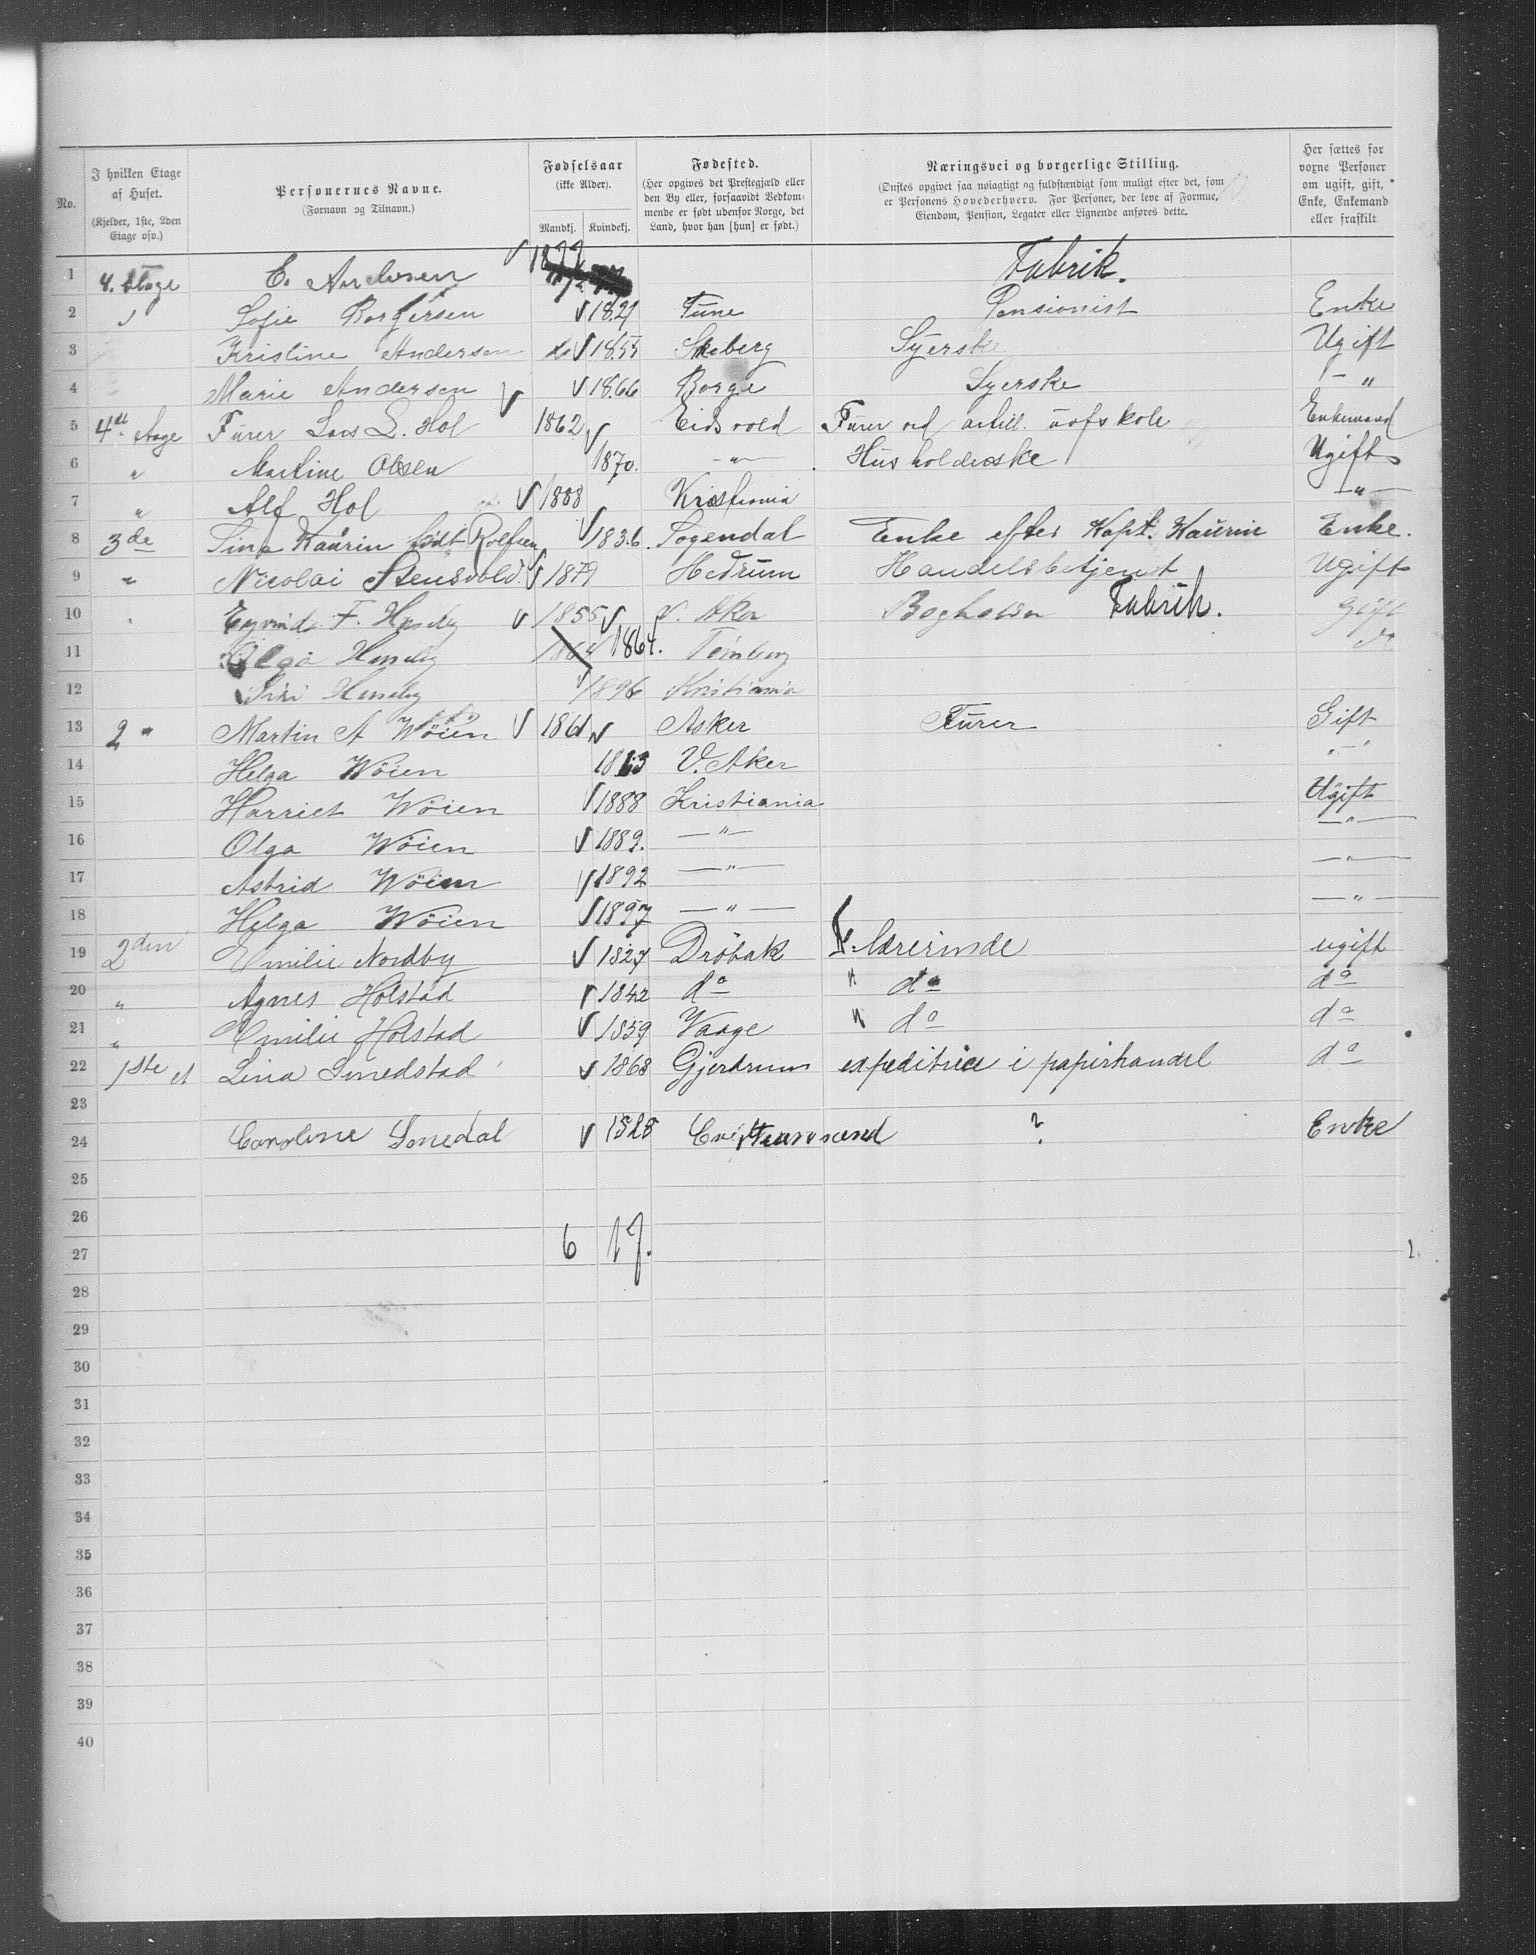 No.
I hvilken Etage af Huset.
(Kjelder, 1ste, 2den Etage osv.)
Personernes Navne.
(Fornavn og Tilnavn.)
Fødselsaar
(ikke Alder).
Mandkj. Kvindekj.
Fødested.
(Her opgives det Prestegjæld eller den By eller, forsaavidt Vedkommende er født udenfor Norge, det Land, hvor han [hun] er født.)
Næringsvei og borgerlige Stilling.
(Ønskes opgivet saa nøiagtigt og fuldstændigt som muligt efter det, som er Personens Hovederhverv. For Personer, der leve af Formue, Eiendom, Pension, Legater eller Lignende anføres dette.
Her sættes for voxne Personer om ugift, gift, Enke, Enkemand eller fraskilt.
1 4. Etage C. Andersen 1877 Fabrik.
2 " Sofie Borgersen 1821 Tune Pensionist Enke
3 Kristine Andersen 1855 Skeberg Syerske Ugift
4 Marie Andersen 1866 Borge Syerske — "
5 4de Etage Furer Lars L. Hol 1862 Eidsvold Furer ved artill. uofskole Enkemand
6 " Martine Olsen 1870. — " — Husholderske Ugift
7 " Alf Hol 1888 Kristiania — " —
8 3de Sina Kaurin født Rolfsen 1836 Sogendal Enke efter Kapt. Kaurin Enke.
9 " Nicolai Stensvold. 1879 Hedrum Handelsbetjent Ugift
10 Eyvind F. Huseby 1855 V. Aker Bogholder Fabrik. Gift
11 Olga Huseby 1864. Tønsberg
12 Siri Huseby 1896 Kristiania
13 2 " Martin A Wöien 1861 Asker Furer Gift
14 Helga Wöien 1863 V. Aker " — "
15 Harriet Wöien 1888 Kristiania Ugift
16 Olga Wöien 1889. — " — — " —
17 Astrid Wöien 1892 — " — — " —
18 Helga Wöien 1897 — " — — " —
19 2den Emilie Nordby 1827 Dröbak Lærerinde ugift
20 " Agnes Holstad 1842 do " do do
21 " Emilie Holstad 1859 Vaage " do do
22 1ste et Lina Smedstad 1868 Gjerdrum expeditrice i papirhandel do
23
24 Caroline Smedal 1828 Christiansand ? Enke
25
26
27 6 17.
28
29
30
31
32
33
34
35
36
37
38
39
40